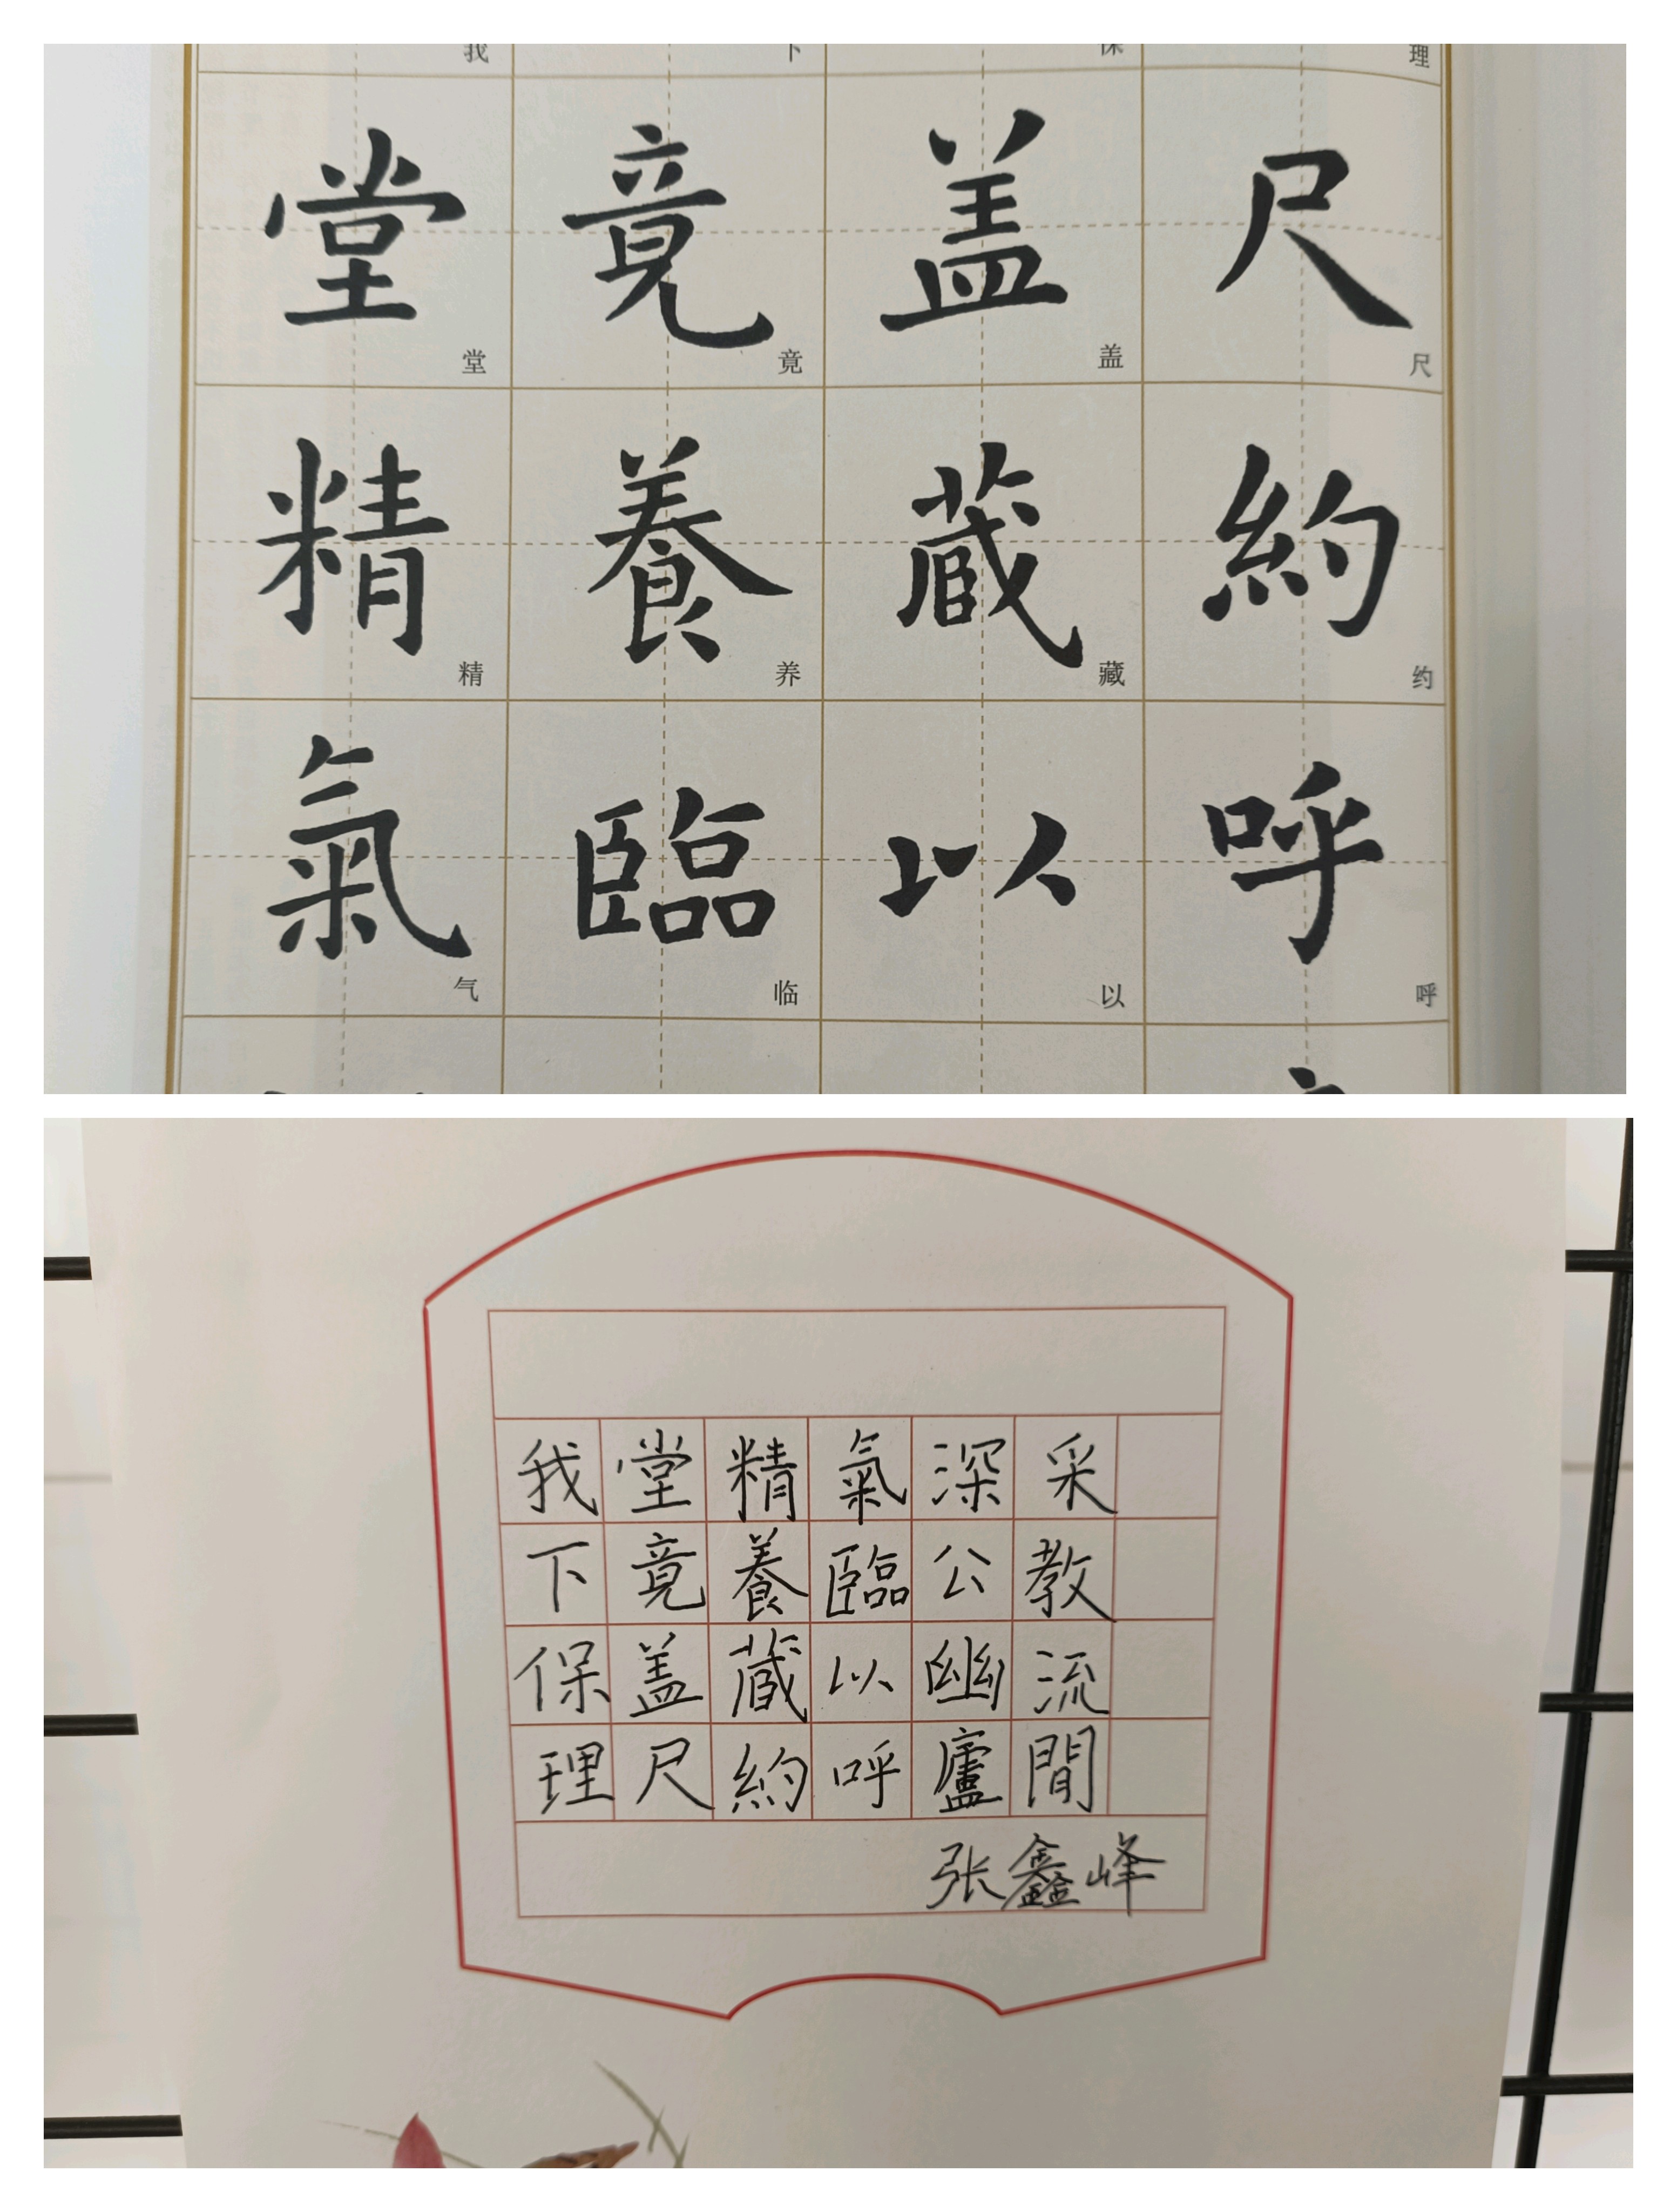 我 下 保 理
堂 竟 盖 尺
堂 竟 盖 尺
精 養 蔵 約
精 养 藏 约
氣 臨 以 呼
气 临 以 呼
我 堂 精 氣 深 采
下 竟 養 臨 公 教
保 盖 蔵 以 幽 流
理 尺 約 呼 廬 間
张鑫峰